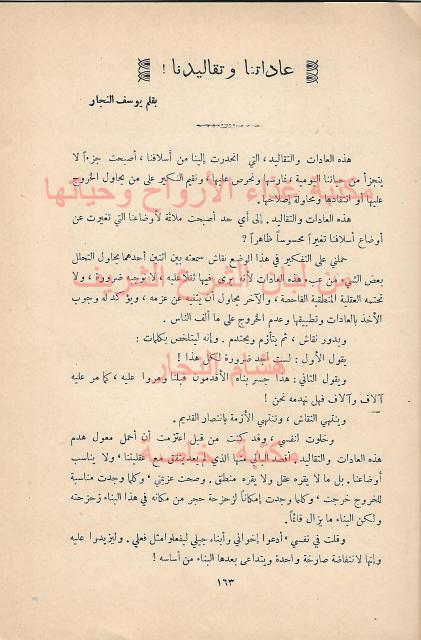 عاداتنا وتقاليدنا !
بقلم يوسف النجار
هذه العادات والتقاليد، التي انحدرت إلينا من أسلافنا، أصبحت جزءاً لا
يتجزأ من حياتنا اليومية، نمارسها ونحرص عليها، ونقيم النكير على من يحاول الخروج
مكتبة غذاء الأرواح وحياتها
عليها أو انتقادها ومحاولة إصلاحها.
هذه العادات والتقاليد.. إلى أي حد أصبحت ملائمة لأوضاعنا التي تغيرت عن
أوضاع أسلافنا تغيراً محسوساً ظاهراً ؟
حملني على التفكير في هذا الوضع نقاش سمعته بين اثنين أحدهما يحاول التحلل
بعض الشيء من عبء هذه العادات لأنه يرى فيها ثقلا عليه، لا توجبه ضرورة، ولا
من لبنان الشرع الشريف
تحتمه العقلية المنطقية الفاحصة، والآخر يحاول أن يثنيه عن عزمه، ويؤكد له وجوب
الأخذ بالعادات وتطبيقها وعدم الخروج على ما ألف الناس.
ويدور نقاش، ثم يتأزم ويحتدم. وإنه ليتلخص بكلمات :
يقول الأول : لست أجد ضرورة لكل هذا !
هشام النجار
ويقول الثاني : هذا جسر بناه الأقدمون قبلنا ومروا عليه، كما مر عليه
آلاف وآلاف فهل نهدمه نحن !
وينتهي النقاش، وتنتهي الأزمة بانتصار القديم.
وخلوت لنفسي، وقد كنت من قبل اعتزمت أن أحمل معول هدم
مكتبة خاصة
هذه العادات والتقاليد البالي منها الذي لم يعد يتفق مع عقليتنا، ولا يناسب
أوضاعنا. بل ما لا يقره عقل ولا يقره منطق. وصحت عزيمتي، وكلما وجدت مناسبة
للخروج خرجت، وكلما وجدت إمكاناً لزحزحة حجر من مكانه في هذا البناء زحزحته
ولكن البناء ما يزال قائماً.
وقلت في نفسي، أدعوا إخواني وأبناء جيلي ليفعلوا مثل فعلي. وليزيدوا عليه
وإنها لانتفاضة صارخة واحدة ويتداعى بعدها البناء من أساسه !
١٦٣